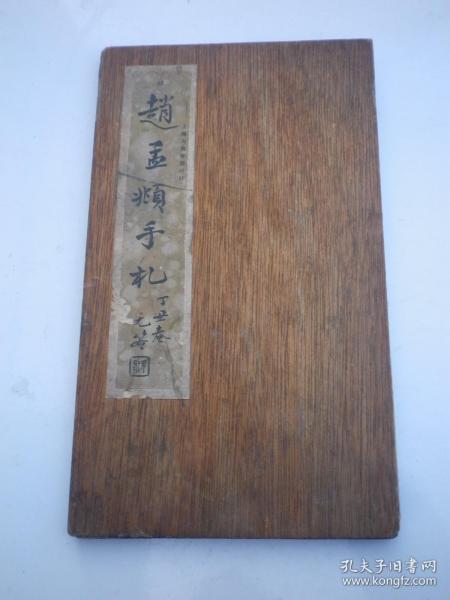 趙孟頫手札
丁丑春
元
孔夫子旧书网
www.kongfz.com